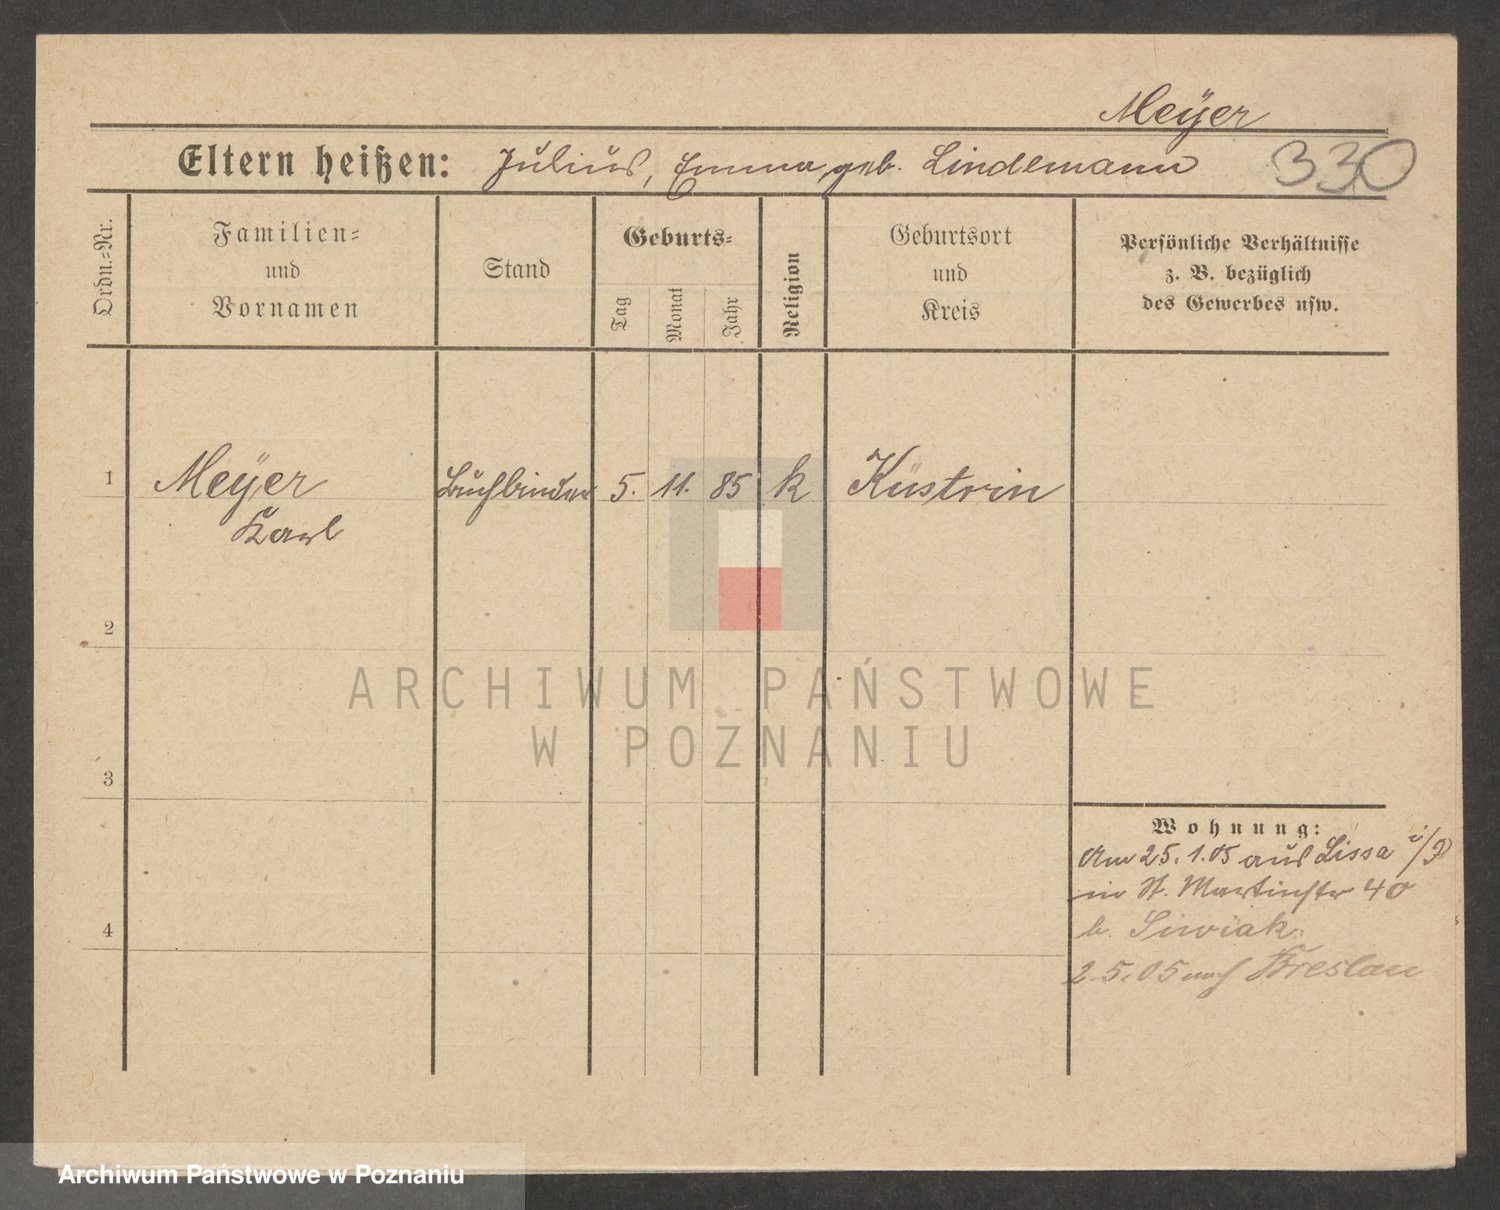 Meÿer
Eltern heißen: Julius, Emma, geb. Lindemann 330
Ordn.=Nr.
Familien=
und
Vornamen
Stand
Geburts=
Tag
Monat
Jahr
Religion
Geburtsort
und
Kreis
Persönliche Verhältnisse
z. B. bezüglich
des Gewerbes usw.
1 Meÿer Buchbinder 5. 11. 85 k Küstrin
Karl
2
3
4
Wohnung:
Am 25.1.05 aus Lissa i/P
in St. Martinstr 40
b. Siwiak.
2.5.05 nach Breslau
ARCHIWUM PAŃSTWOWE
W POZNANIU
Archiwum Państwowe w Poznaniu